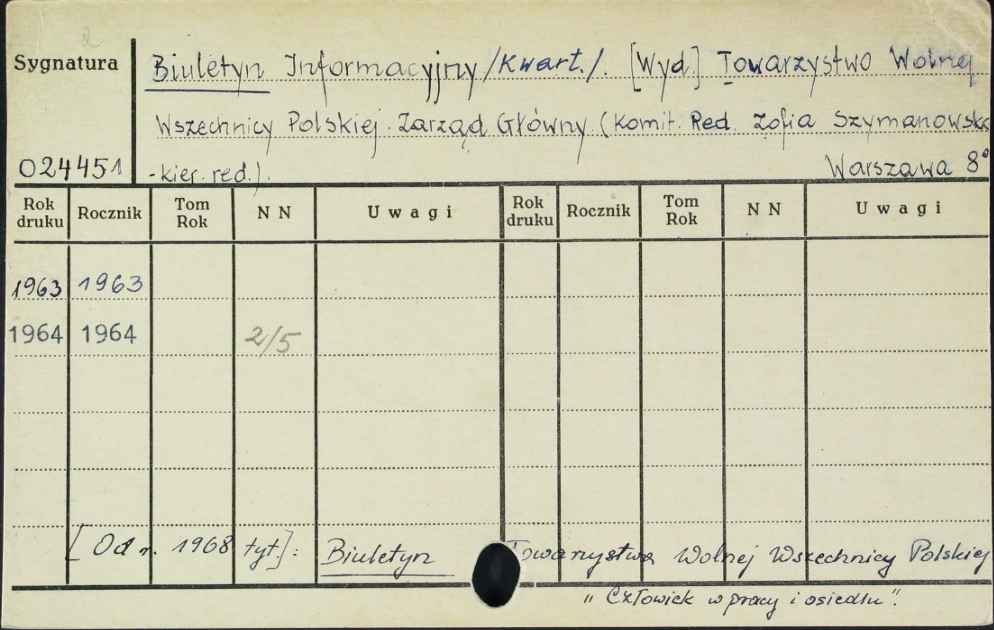 2
Sygnatura
Biuletyn Informacyjny /Kwart./. [Wyd.] Towarzystwo Wolnej
Wszechnicy Polskiej. Zarząd Główny (Komit. Red. Zofia Szymanowska
024451
-kier. red.). Warszawa 8°
Rok druku Rocznik Tom Rok NN Uwagi Rok druku Rocznik Tom Rok NN Uwagi
1963 1963
1964 1964 2/5
[Od r. 1968 tyt]: Biuletyn Towarzystwa Wolnej Wszechnicy Polskiej
"Człowiek w pracy i osiedlu".